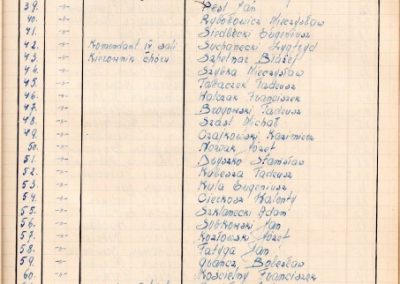 39. -"- Pest Jan
40. -"- Rybotowicz Mieczysław
41. -"- Siedlecki Eugeniusz
42. Komendant IV sali Suchanecki Zygfryd
43. Kierownik chóru Szpetnar Błażej
44. -"- Szybka Mieczysław
45. -"- Tabaczek Tadeusz
46. -"- Walczak Franciszek
47. -"- Tadeusz
48. -"- Szast Michał
49. -"- Czajkowski Kazimierz
50. -"- Nowak Józef
51. -"- Dryszko Stanisław
52. -"- Kubesza Tadeusz
53. -"- Kula Eugeniusz
54. -"- Cieckosz Walenty
55. -"- Szklanecki Adam
56. -"- Sobkowski Jan
57. -"- Kozłowski Józef
58. -"- Fatyga Jan
59. -"- Bolesław
60. -"- Kościelny Franciszek